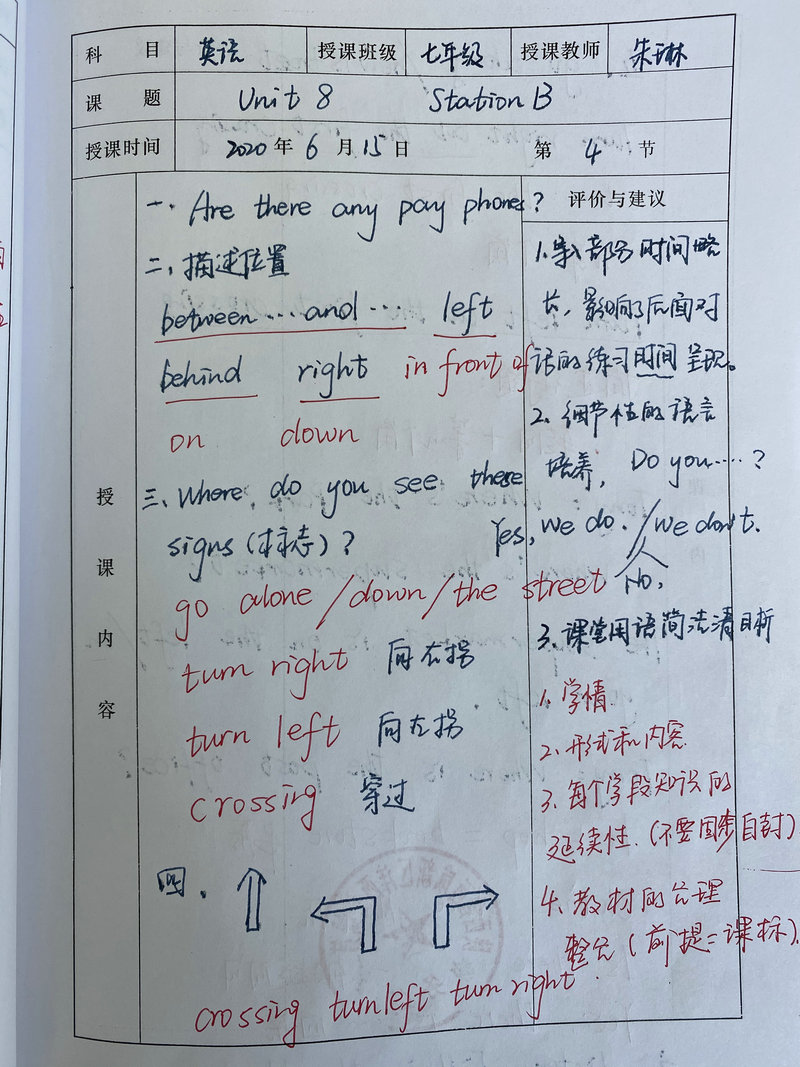 科 目 英语 授课班级 七年级 授课教师 朱琳
课 题 Unit 8 Station B
授课时间 2020 年 6 月 15 日 第 4 节
授课内容
一. Are there any pay phones?
二, 描述位置
between...and... left
behind right in front of
on down
三. Where do you see these
signs (标志)?
go alone/down/the street
turn right 向右拐
turn left 向左拐
crossing 穿过
四.
crossing turn left turn right
评价与建议
1. 导入部分时间略
长, 影响了后面对
话的练习时间呈现。
2. 细节性的语言
培养, Do you....?
Yes, we do. / we don't.
No,
3. 课堂用语简洁清晰
1. 学情
2. 形式和内容
3. 每个学段知识的
延续性. (不要固步自封)
4. 教材的合理
整合 (前提=课标).